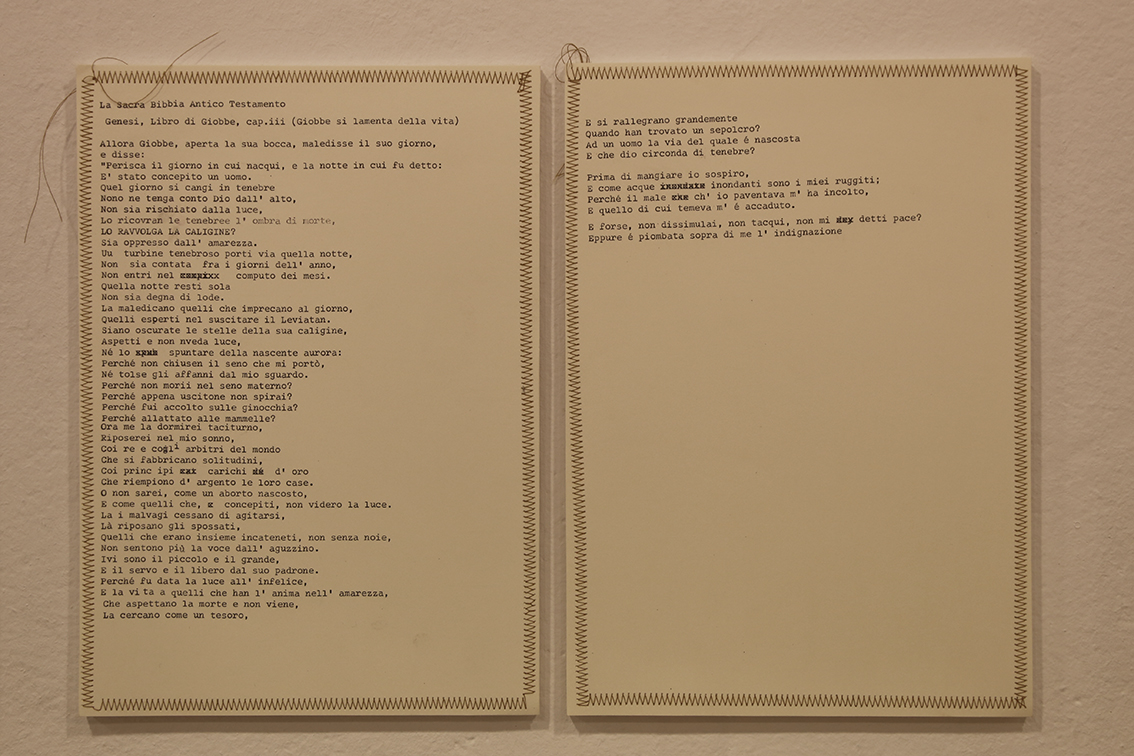 La Sacra Bibbia Antico Testamento
Genesi, Libro di Giobbe, cap.iii (Giobbe si lamenta della vita)
Allora Giobbe, aperta la sua bocca, maledisse il suo giorno,
e disse:
"Perisca il giorno in cui nacqui, e la notte in cui fu detto:
E' stato concepito un uomo.
Quel giorno si cangi in tenebre
Nono ne tenga conto Dio dall' alto,
Non sia rischiato dalla luce,
Lo ricovran le tenebree l' ombra di morte,
LO RAVVOLGA LA CALIGINE?
Sia oppresso dall' amarezza.
Uu turbine tenebroso porti via quella notte,
Non sia contata fra i giorni dell' anno,
Non entri nel computo dei mesi.
Quella notte resti sola
Non sia degna di lode.
La maledicano quelli che imprecano al giorno,
Quelli esperti nel suscitare il Leviatan.
Siano oscurate le stelle della sua caligine,
Aspetti e non nveda luce,
Né lo spuntare della nascente aurora:
Perché non chiusen il seno che mi portò,
Né tolse gli affanni dal mio sguardo.
Perché non morii nel seno materno?
Perché appena uscitone non spirai?
Perché fui accolto sulle ginocchia?
Perché allattato alle mammelle?
Ora me la dormirei taciturno,
Riposerei nel mio sonno,
Coi re e cogli arbitri del mondo
Che si fabbricano solitudini,
Coi princ ipi carichi d' oro
Che riempiono d' argento le loro case.
O non sarei, come un aborto nascosto,
E come quelli che, x concepiti, non videro la luce.
La i malvagi cessano di agitarsi,
Là riposano gli spossati,
Quelli che erano insieme incateneti, non senza noie,
Non sentono più la voce dall' aguzzino.
Ivi sono il piccolo e il grande,
E il servo e il libero dal suo padrone.
Perché fu data la luce all' infelice,
E la vita a quelli che han l' anima nell' amarezza,
Che aspettano la morte e non viene,
La cercano come un tesoro,
E si rallegrano grandemente
Quando han trovato un sepolcro?
Ad un uomo la via del quale é nascosta
E che dio circonda di tenebre?
Prima di mangiare io sospiro,
E come acque inondanti sono i miei ruggiti;
Perché il male ch' io paventava m' ha incolto,
E quello di cui temeva m' é accaduto.
E forse, non dissimulai, non tacqui, non mi detti pace?
Eppure é piombata sopra di me l' indignazione